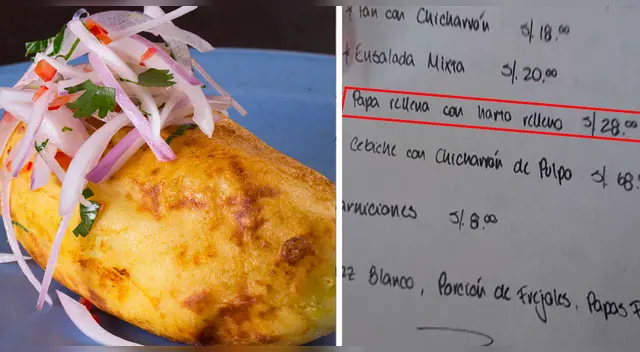 Pan con Chicharrón S/18.00
+ Ensalada Mixta S/. 20.00
Papa rellena con harto relleno S/28.00
Cebiche con Chicharrón de Pulpo S/ 68.
arniciones S/. 8.00
Blanco, Porción de Frejoles, Papas F